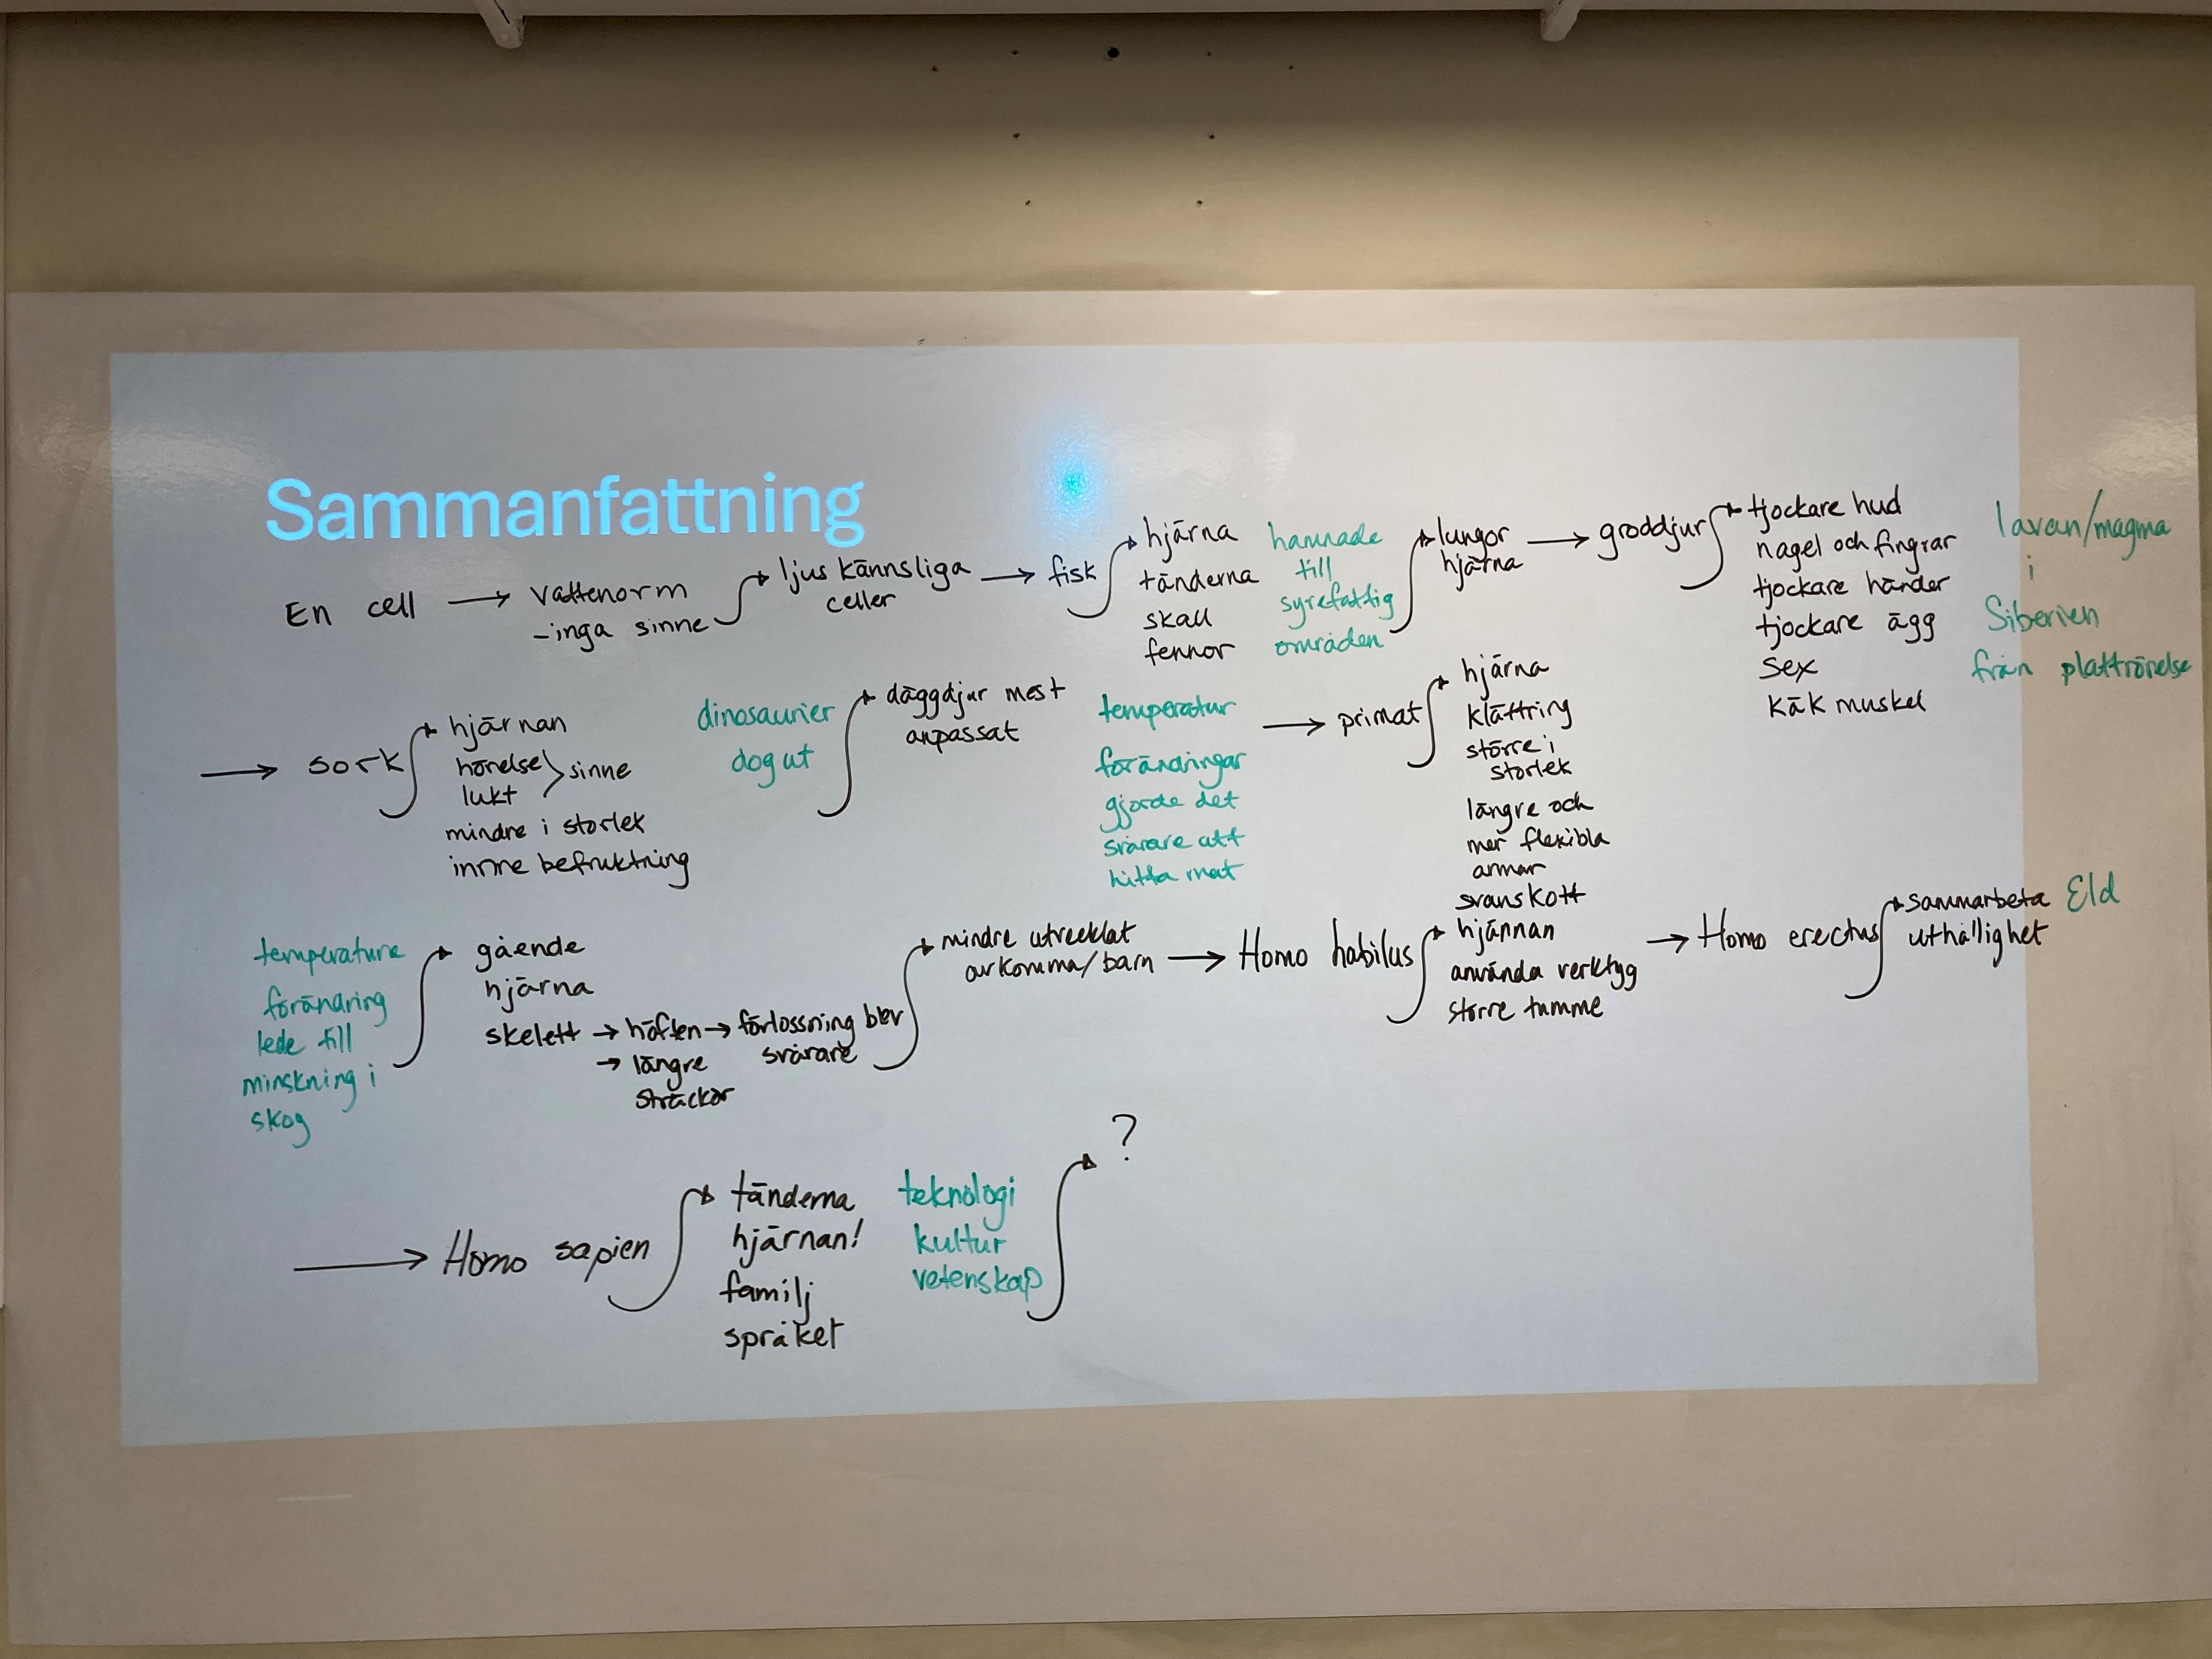 Sammanfattning
En cell → vattenorm
-inga sinne
ljus kännsliga
celler
→ fisk
hjärna
tänderna
skall
fennor
hamnade
till
syrefattig
områden
lungor
hjärna
→ groddjur
tjockare hud
nagel och fingrar
tjockare händer
tjockare ägg
sex
käk muskel
lavan/magma
i
Siberien
från plattrörelse
→ sork
hjärnan
hörelse
lukt
sinne
mindre i storlek
inrne befruktning
dinosaurier
dog ut
däggdjur mest
anpassat
temperatur
förändringar
gjorde det
svårare att
hitta mat
→ primat
hjärna
klättring
större i
storlek
längre och
mer flexibla
armar
svanskott
temperature
förändring
lede till
minskning i
skog
gående
hjärna
skelett → höften → förlossning blev
svårare
→ längre
sträckor
mindre utvecklat
avkomma/barn
→ Homo habilus
hjärnan
använda verktyg
större tumme
→ Homo erectus
sammarbeta
uthållighet
Eld
→ Homo sapien
tänderna
hjärnan!
familj
språket
teknologi
kultur
vetenskap
?